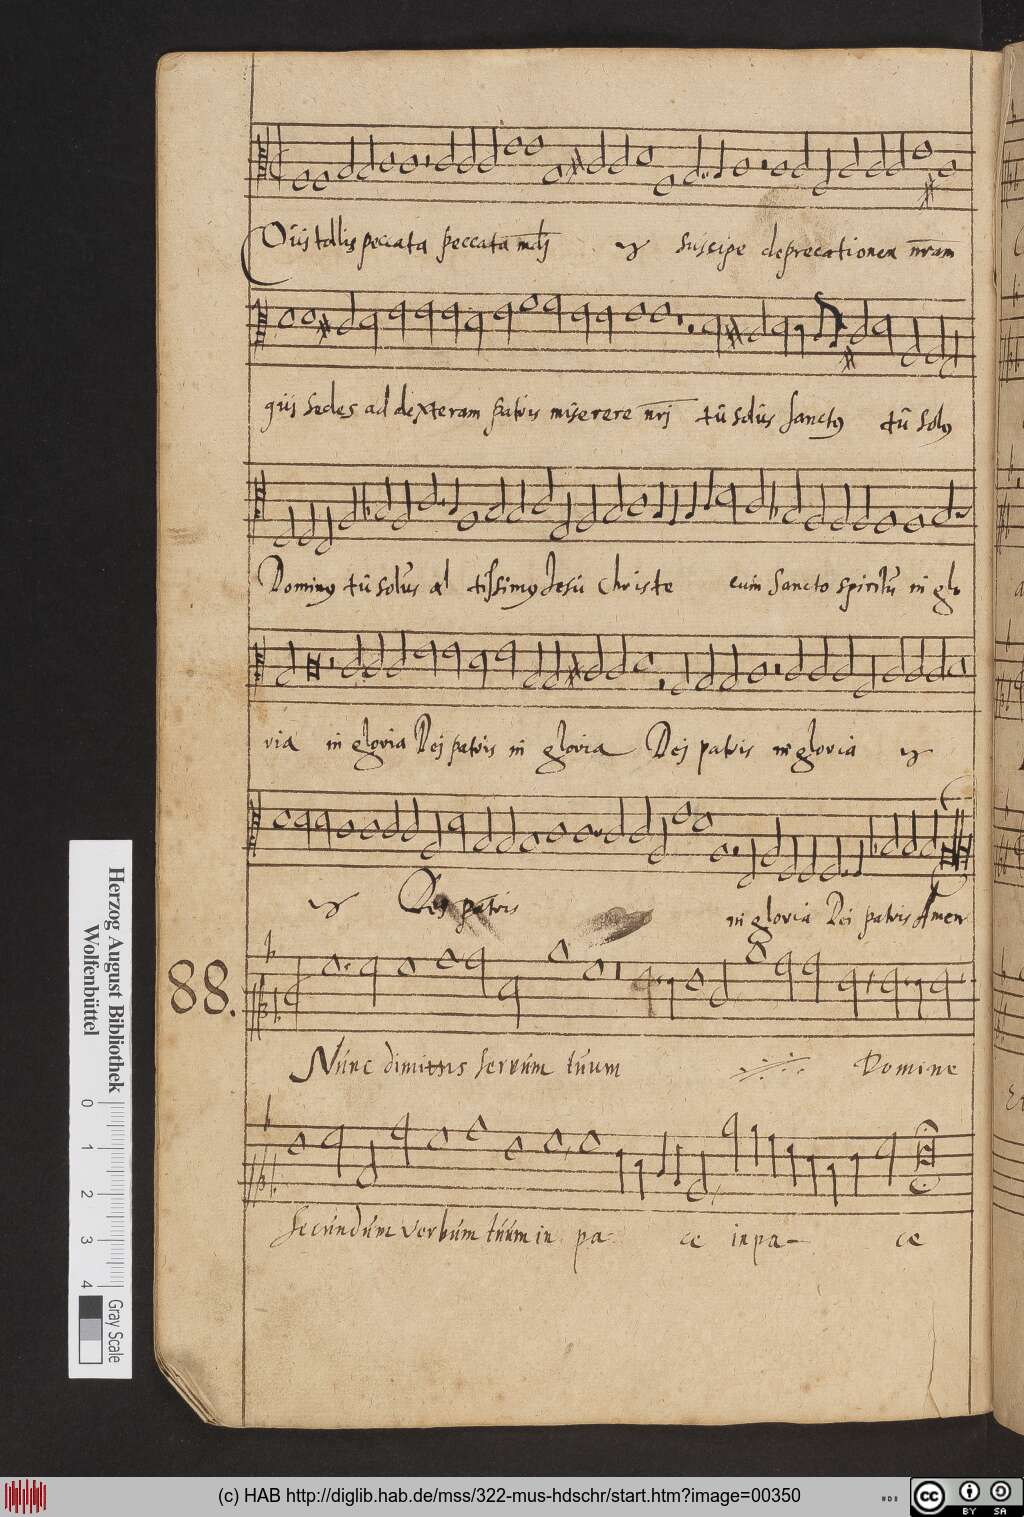 Qui tollis peccata peccata mdj suscipe deprecationem nram
qui sedes ad dexteram patris miserere nrj tū solus sanctus tū solus
Dominus tū solus al tissimus Jesu Christe cum Sancto spiritu in glo
ria in gloria Dei patris in gloria Dei patris in gloria
Dei patris in gloria Dei patris Amen
88.
Nunc dimittis servum tuum Domine
Secundum verbum tuum in pa- ce in pa- ce
Herzog August Bibliothek
Wolfenbüttel
0 1 2 3 4 Gray Scale
(c) HAB http://diglib.hab.de/mss/322-mus-hdschr/start.htm?image=00350
cc BY SA